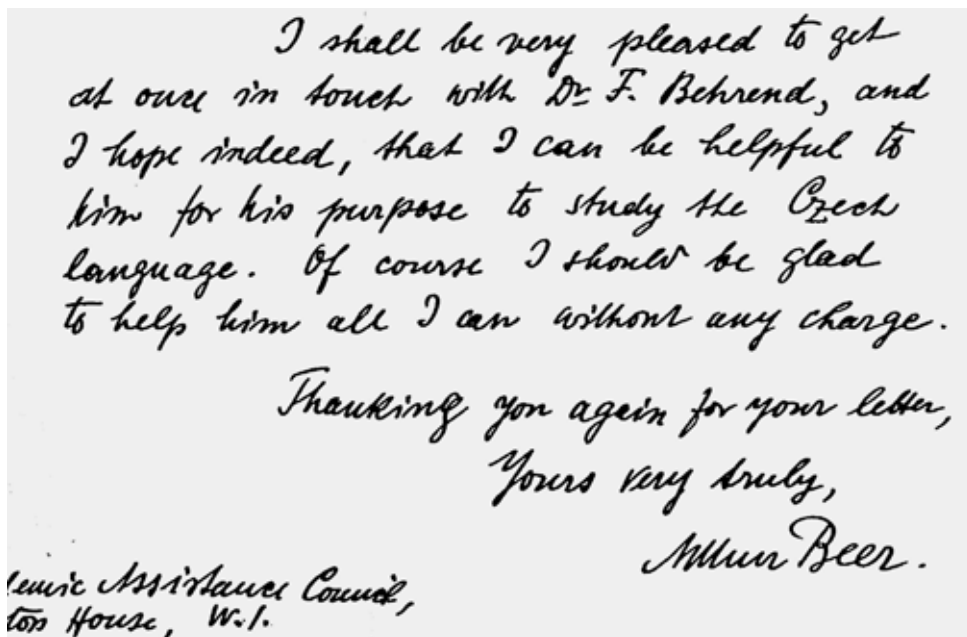 I shall be very pleased to get
at once in touch with Dr F. Behrend, and
I hope indeed, that I can be helpful to
him for his purpose to study the Czech
language. Of course I should be glad
to help him all I can without any charge.
Thanking you again for your letter,
Yours very truly,
Arthur Beer.
demic Assistance Council,
ton House, W.1.